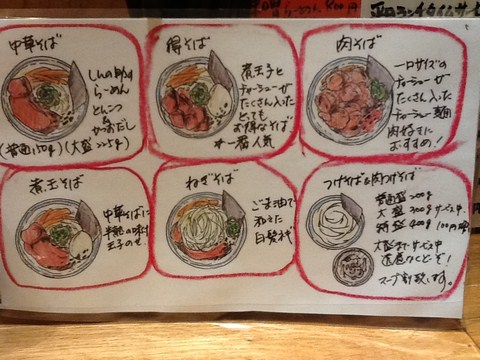 中華そば
しんの助の
らーめん
とんこつ
&
かつおだし
(普通150g)(大盛225g)
得そば
煮玉子と
チャーシューが
たくさん入った
とっても
お得なそば
一番人気
肉そば
一口サイズの
チャーシューが
たくさん入った
チャーシュー麺
肉好きに
おすすめ!
煮玉そば
中華そばに
半熟の味付
玉子のせ。
ねぎそば
ごま油で
和えた
白髪ネギ
つけそば&肉つけそば
普通盛200g
大盛300gサービス中
特盛400g 100円増
大盛までサービス中
遠慮なくどーぞ!
スープ割致します。